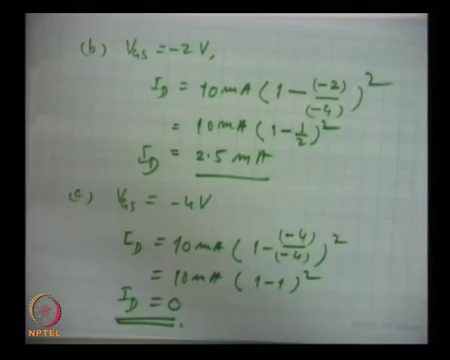 (b) VGS = -2 V,
ID = 10mA (1 - (-2)/(-4))²
= 10mA (1 - 1/2)²
ID = 2.5 mA
(c) VGS = -4V
ID = 10mA (1 - (-4)/(-4))²
= 10mA (1-1)²
ID = 0
NPTEL